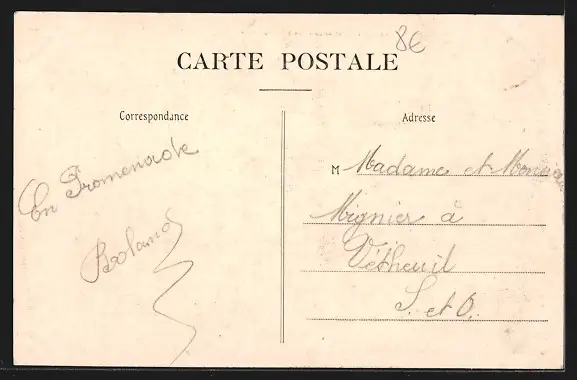 8€
CARTE POSTALE
Correspondance
Adresse
En Promenade
Roland
M Madame et Monsieur
Mignier à
Vétheuil
S. et O.